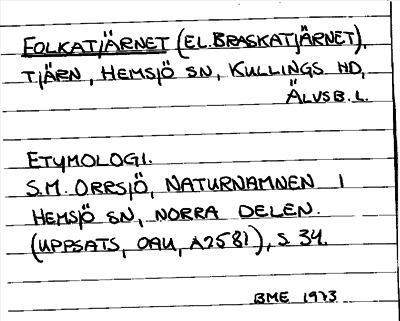 FOLKATJÄRNET (EL. BRASKATJÄRNET),
TJÄRN, HEMSJÖ SN, KULLINGS HD,
ÄLVSB. L.
ETYMOLOGI.
S.M. ORRSJÖ, NATURNAMNEN I
HEMSJÖ SN, NORRA DELEN.
(UPPSATS, OAU, A2581), S 34.
BME 1973